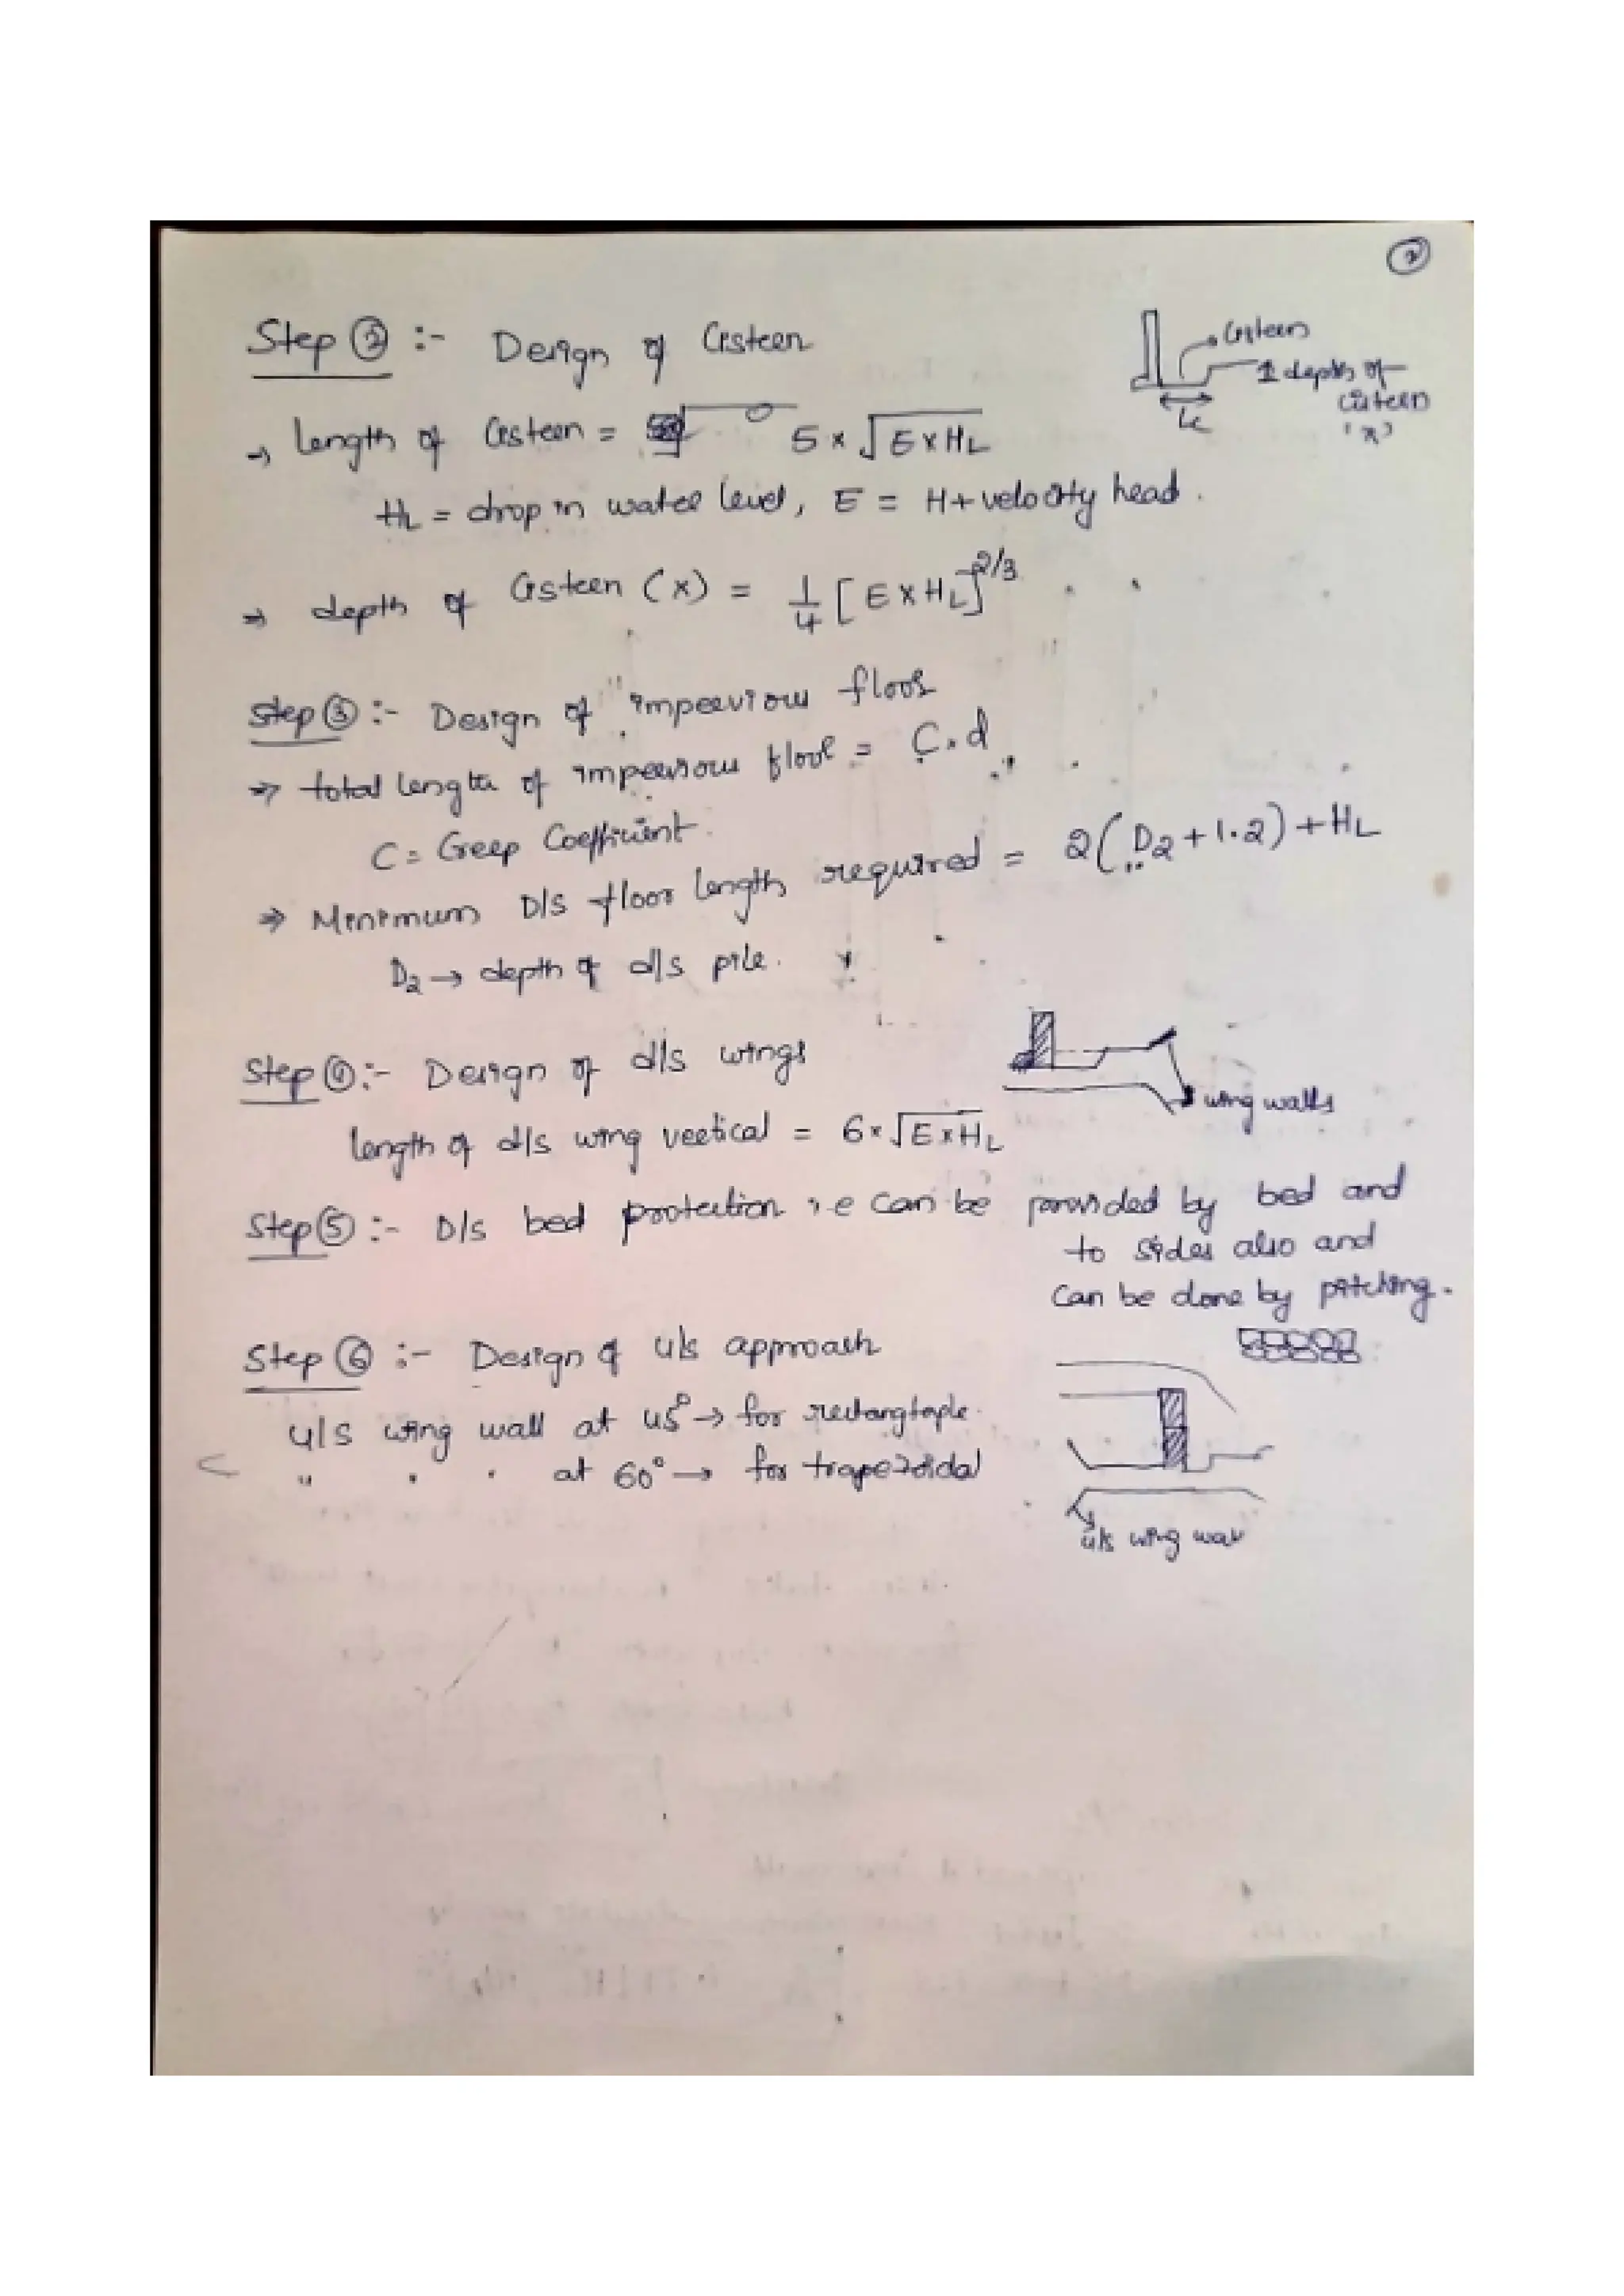 2
Step ② :- Design of Cisteen
Cisteen
depth of
cisteen
'x'
Lc
→ length of Cisteen = 5 × √E×HL
HL = drop in water level, E = H + velocity head.
⇒ depth of Cisteen (x) = 1/4 [E×HL]^2/3
Step ③ :- Design of impervious floor
⇒ total length of impervious floor = C.d
C = Creep Coefficient.
⇒ Minimum D/s floor length required = 2(D2 + 1.2) + HL
D2 → depth of d/s pile.
Step ④ :- Design of d/s wings
wing walls
length of d/s wing vertical = 6×√E×HL
Step ⑤ :- D/s bed protection i.e can be provided by bed and
to sides also and
can be done by pitching.
Step ⑥ :- Design of u/s approach
u/s wing wall at 45° → for rectangtaple.
" " " at 60° → for trapezoidal
u/s wing wall